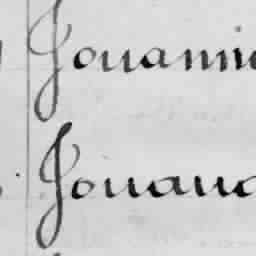 Jouanni
Jouana